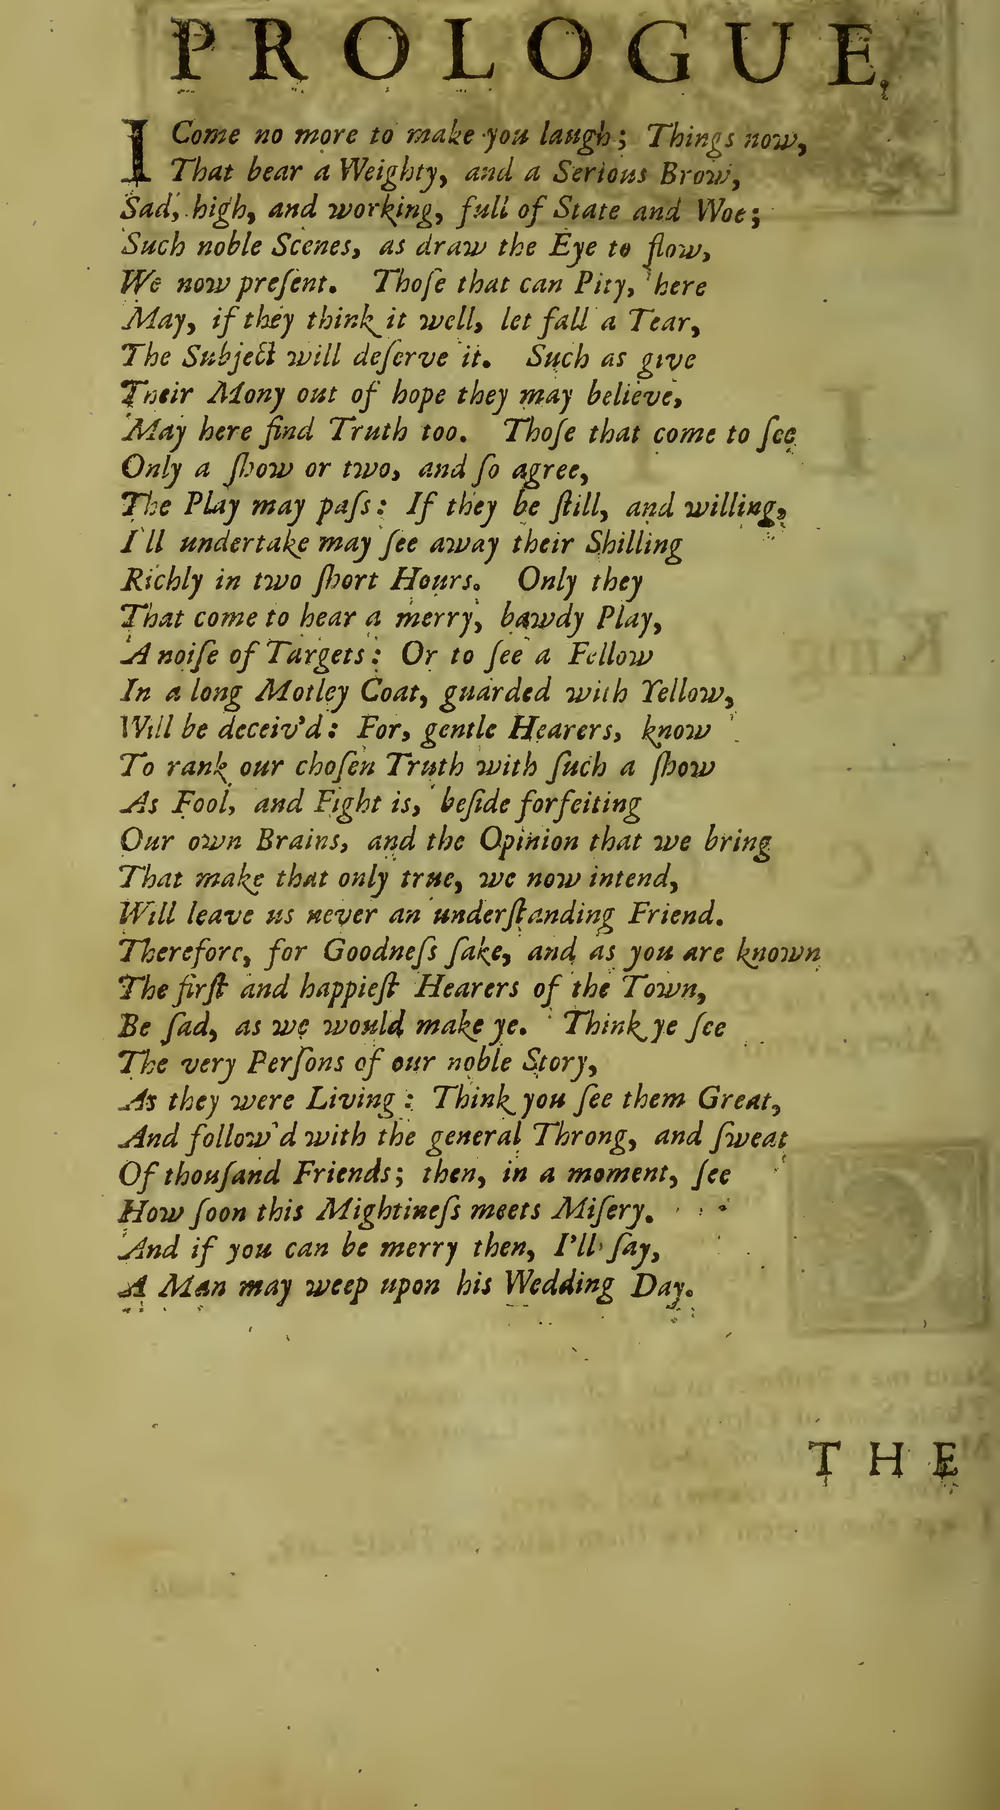 PROLOGUE.
I Come no more to make you laugh; Things now,
That bear a Weighty, and a Serious Brow,
Sad, high, and working, full of State and Woe;
Such noble Scenes, as draw the Eye to flow,
We now preſent. Thoſe that can Pity, here
May, if they think it well, let fall a Tear,
The Subject will deſerve it. Such as give
Their Mony out of hope they may believe,
May here find Truth too. Thoſe that come to ſee
Only a ſhow or two, and ſo agree,
The Play may paſs: If they be ſtill, and willing,
I'll undertake may ſee away their Shilling
Richly in two ſhort Hours. Only they
That come to hear a merry, bawdy Play,
A noiſe of Targets: Or to ſee a Fellow
In a long Motley Coat, guarded with Yellow,
Will be deceiv'd: For, gentle Hearers, know
To rank our choſen Truth with ſuch a ſhow
As Fool, and Fight is, beſide forfeiting
Our own Brains, and the Opinion that we bring
That make that only true, we now intend,
Will leave us never an underſtanding Friend.
Therefore, for Goodneſs ſake, and as you are known
The firſt and happieſt Hearers of the Town,
Be ſad, as we would make ye. Think ye ſee
The very Perſons of our noble Story,
As they were Living: Think you ſee them Great,
And follow'd with the general Throng, and ſweat
Of thouſand Friends; then, in a moment, ſee
How ſoon this Mightineſs meets Miſery.
And if you can be merry then, I'll ſay,
A Man may weep upon his Wedding Day.
THE